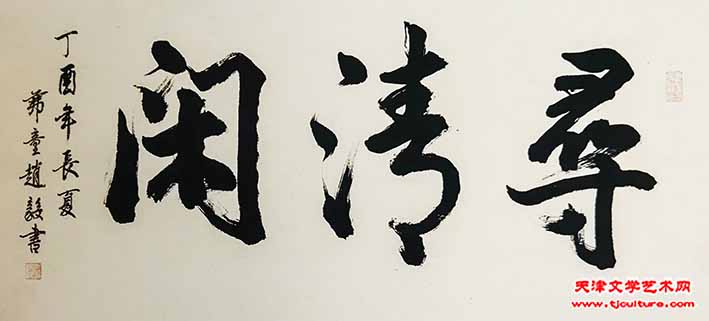 尋清闲
丁酉年長夏
趙毅書
天津文学艺术网
www.tjculture.com